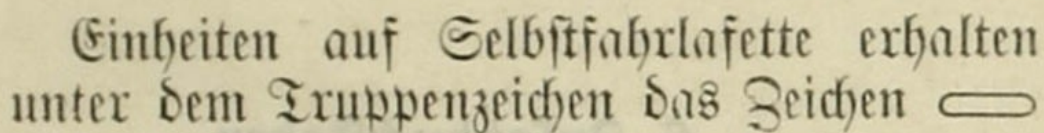 Einheiten auf Selbſtfahrlafette erhalten
unter dem Truppenzeichen das Zeichen